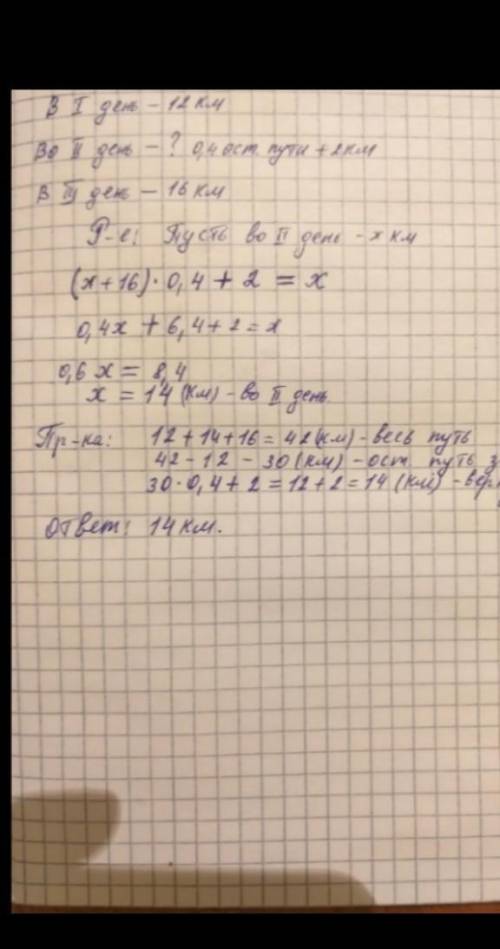 В I день – 12 км
Во II день – ? 0,4 ост. пути + 2км
В III день – 16 км
Р-е: Пусть во II день – x км
(x+16)·0,4 + 2 = x
0,4x + 6,4 + 2 = x
0,6 x = 8,4
x = 14 (км) – во II день
Пр-ка: 12 + 14 + 16 = 42 (км) – весь путь
42 – 12 – 30 (км) – ост. путь
30·0,4 + 2 = 12 + 2 = 14 (км) –
Ответ: 14 км.